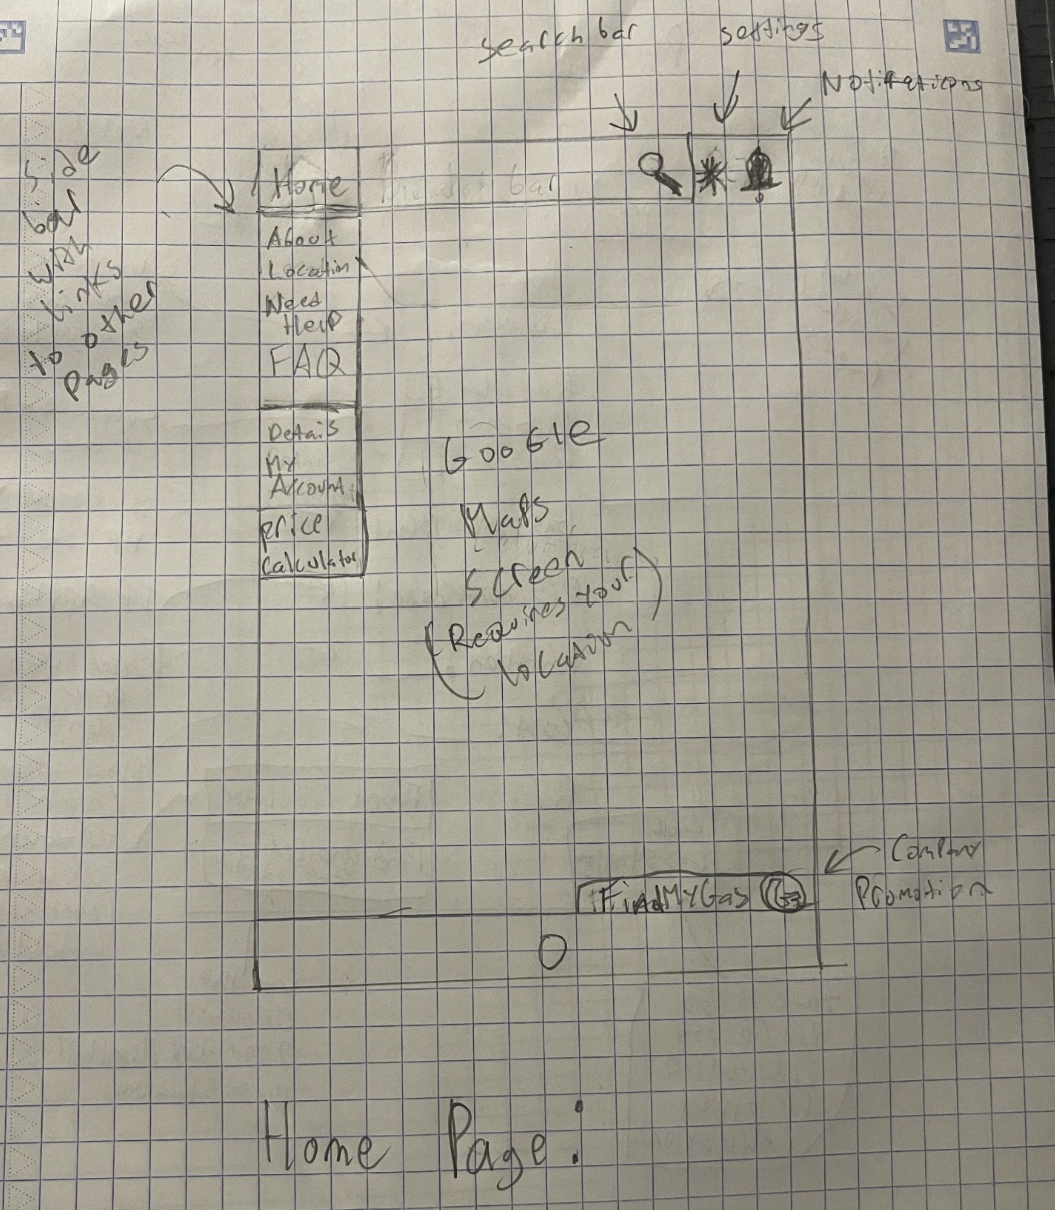 search bar
settings
Notifications
Side
bar
with
links
to other
pages
Home
bar
About
Location
Need
Help
FAQ
Details
My
Account
Price
Calculator
Google
Maps
Screen
(Requires your
location)
FindMyGas G
Company
Promotion
Home Page: